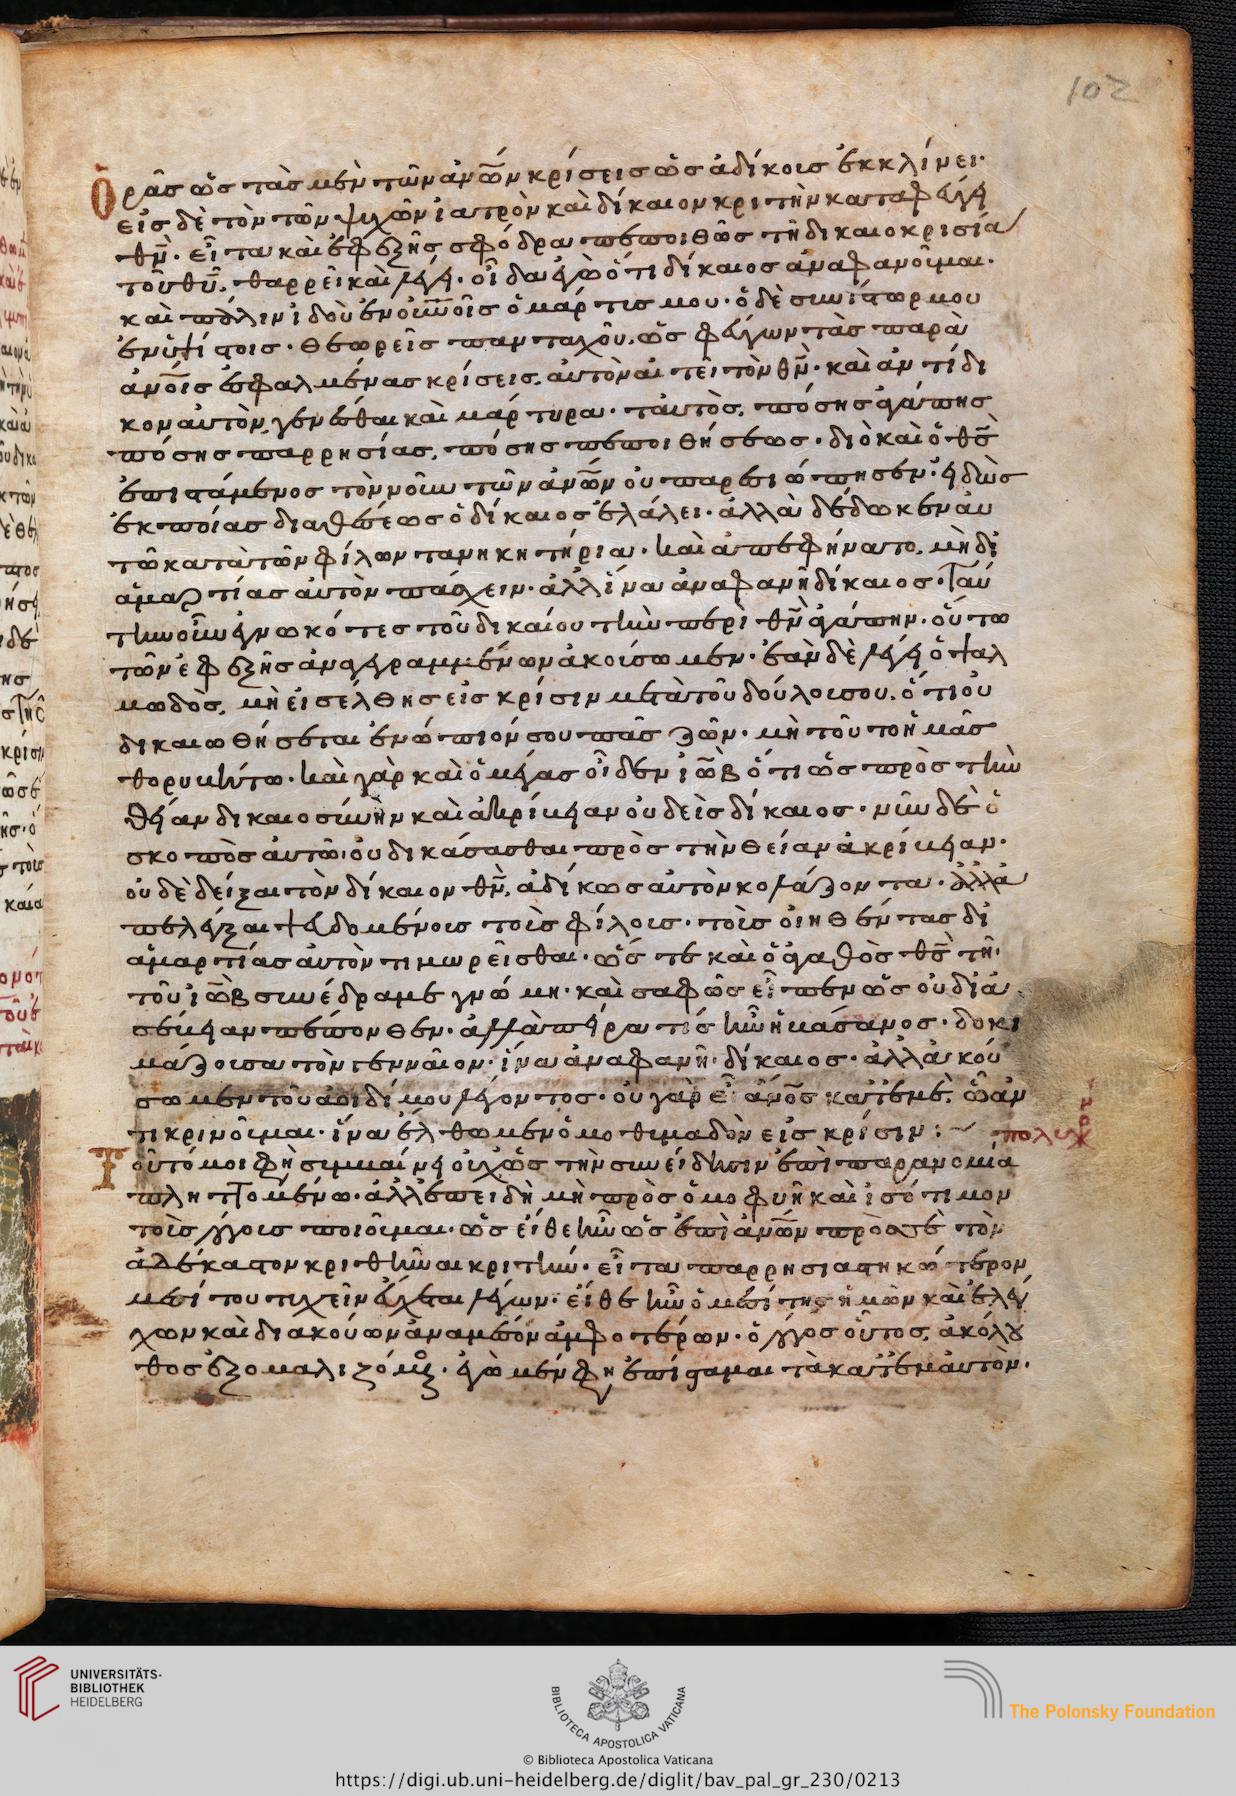 102
Ὁρᾶς ὡς τὰς μὲν τῶν ἀνῶν κρίσεις ὡς ἀδίκους ἐκκλίνει·
εἰς δὲ τὸν τῶν ψυχῶν ἰατρὸν καὶ δίκαιον κριτὴν καταφεύγει
θν· εἶτα καὶ ἐφεξῆς σφόδρα πεποιθὼς τῇ δικαιοκρισία
τοῦ θυ, θαρρεῖ καὶ λέγει· οἶδα ἐγὼ ὅτι δίκαιος ἀναφανοῦμαι·
καὶ πάλιν ἰδοὺ ἐν οὐνοῖς ὁ μάρτυς μου· ὁ δὲ συνίστωρ μου
ἐν ὑψίστοις· θεωρεῖς πανταχοῦ, ὡς φεύγων τὰς παρὰ
ἀνοις ἐσφαλμένας κρίσεις, αὐτὸν αἰτεῖ τὸν θν· καὶ ἀντίδι
κον αὐτὸν γενέσθαι καὶ μάρτυρα· ταῦτα πόσης ἀγάπης
πόσης παρρησίας, πόσης πεποιθήσεως· διὸ καὶ ὁ θς
ἐπιστάμενος τὸν νοῦν τῶν ἀνῶν οὐ παρεσιώπησεν· εἰδὼς
ἐκ ποίας διαθέσεως ὁ δίκαιος ἐλάλει· ἀλλὰ δέδωκεν αὐ
τῶ κατὰ τῶν φίλων τα νικητήρια· καὶ ἀπεφήνατο, μὴ δι
ἁμαρτίας αὐτὸν πάσχειν· ἀλλ ἵνα ἀναφανῆ δίκαιος· ταύ
την οὖν ἐγνωκότες τοῦ δικαίου τὴν περὶ θν ἀγάπην· οὕτω
τῶν ἐφεξῆς ἀναγεγραμμένων ἀκούσωμεν· ἐὰν δὲ λέγει ὁ ψαλ
μωδὸς, μὴ εἰσέλθης εἰς κρίσιν μετὰ τοῦ δούλου σου, ὅτι οὐ
δικαιωθήσεται ἐνώπιόν σου πᾶς ζῶν· μὴ τοῦτο ἡμᾶς
θορυβείτω· καὶ γὰρ καὶ ὁ μέγας οἶδεν ἰὼβ ὅτι ὡς πρὸς τὴν
θείαν δικαιοσύνην καὶ ἀκρίβειαν οὐδεὶς δίκαιος· νῦν δὲ ὁ
σκοπὸς αὐτῶ· οὐ δικάσασθαι πρὸς τὴν θείαν ἀκρίβειαν·
οὐδὲ δεῖξαι τὸν δίκαιον θν, ἀδίκως αὐτὸν κολάζοντα· ἀλλὰ
πελέγξαι ψευδομένους τοὺς φίλους· τοὺς οἰηθέντας δι
ἁμαρτίας αὐτὸν τιμωρεῖσθαι· ὥστε καὶ ὁ ἀγαθὸς θς τῆ
τοῦ ἰὼβ συνέδραμε γνώμη· καὶ σαφῶς εἶπεν ὡς οὐ δι ἀ
σέβειαν πέπονθεν· ἀλλὰ πεῖρα τίς ἦν ἡ βάσανος· δοκι
μάζουσα τὸν γενναῖον· ἵνα ἀναφανῆ δίκαιος· ἀλλ ἀκού
σωμεν τοῦ ἀοιδίμου λέγοντος· οὐ γὰρ εἶ ἄνος κατ ἐμὲ, ὧ ἀν
τικρινοῦμαι· ἵνα ἔλθωμεν ὁμοθυμαδὸν εἰς κρίσιν:~
πολυχρο
Τοῦτό μοι φὴ συμβαίνει οὐχ ὡς τὴν συνείδησιν ἐπὶ παρανομία
πληττομένω· ἀλλ ἐπειδὴ μὴ πρὸς ὁμοφυῆ καὶ ἰσότιμον
τοὺς λόγους ποιοῦμαι· ὡς εἴθε ἦν ὡς ἐπὶ ἀνῶν πρὸς σὲ τὸν
ἀδέκαστον κριθῆναι κριτήν· εἶτα παρρησιαστικώτερον
μεσίτου τυχεῖν εὔχεται λέγων· εἴθε ἦν ὁ μεσίτης ἡμῶν καὶ ἐλέγ
χων καὶ διακούων ἀναμέσον ἀμφοτέρων· ὁ λόγος οὗτος, ἀκόλου
θος ἐξομαλιζόμενος· ἐγὼ μέν φη ἐπίσταμαι τὰ κατ ἐμαυτὸν·
UNIVERSITÄTS-
BIBLIOTHEK
HEIDELBERG
BIBLIOTECA APOSTOLICA VATICANA
The Polonsky Foundation
© Biblioteca Apostolica Vaticana
https://digi.ub.uni-heidelberg.de/diglit/bav_pal_gr_230/0213